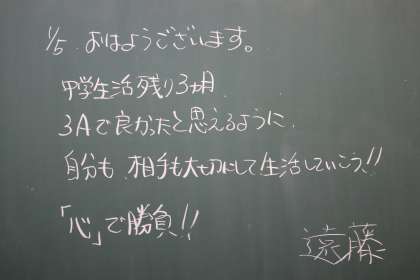 1/5 おはようございます。
中学生活残り3ヶ月
3Aで良かったと思えるように、
自分も、相手も大切にして生活していこう!!
「心」で勝負!!
遠藤